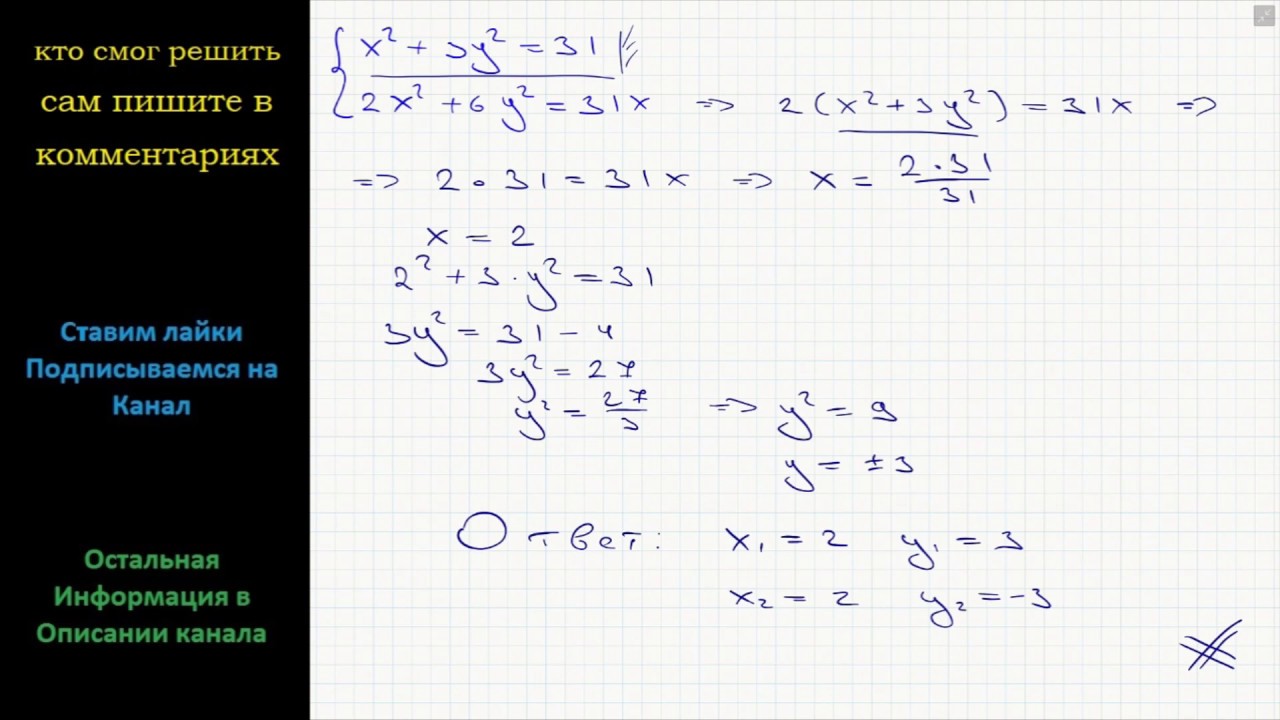 кто смог решить
сам пишите в
комментариях
Ставим лайки
Подписываемся на
Канал
Остальная
Информация в
Описании канала
{ x² + 3y² = 31 |
2x² + 6y² = 31x => 2(x² + 3y²) = 31x =>
=> 2 · 31 = 31x => x = 2·31/31
x = 2
2² + 3 · y² = 31
3y² = 31 - 4
3y² = 27
y² = 27/3 => y² = 9
y = ±3
Ответ: x₁ = 2 y₁ = 3
x₂ = 2 y₂ = -3